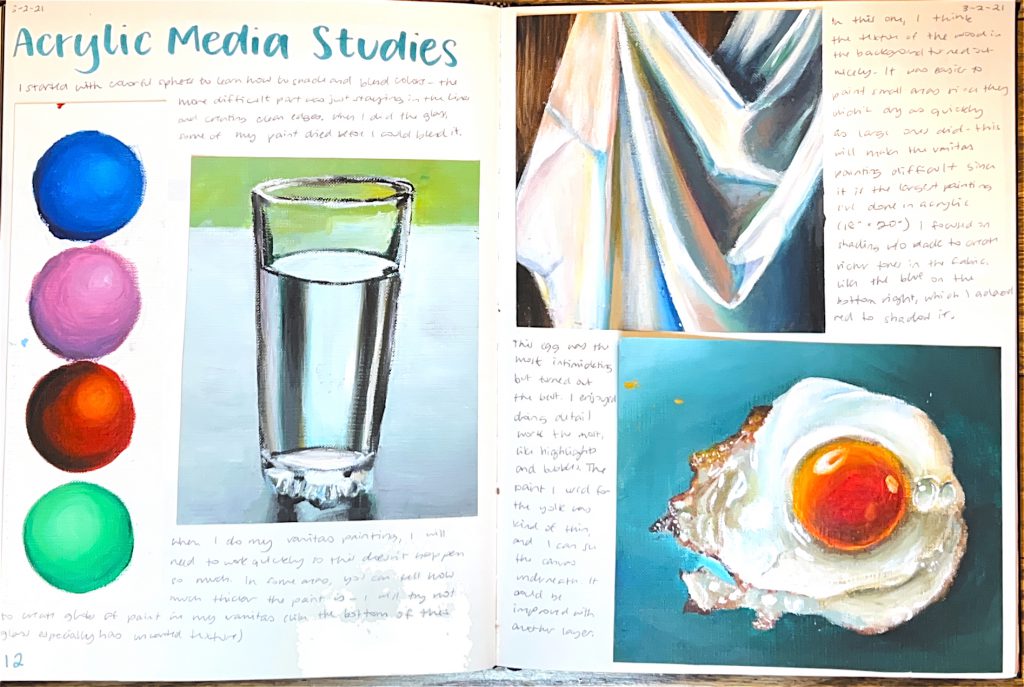 3-2-21
Acrylic Media Studies
I started with colorful spheres to learn how to shade and blend colors - the
more difficult part was just staying in the lines
and creating clean edges. When I did the glass,
some of my paint dried before I could blend it.
When I do my vanitas painting, I will
need to work quickly so this doesn't happen
so much. In some areas, you can tell how
much thicker the paint is - I will try not
to create globs of paint in my vanitas (with the bottom of the
glass especially has unwanted texture)
12
3-2-21
In this one, I think
the texture of the wood in
the background turned out
nicely. It was easier to
paint small areas since they
didn't dry as quickly
as large ones did - this
will make the vanitas
painting difficult since
it is the largest painting
I've done in acrylic
(16" × 20") I focused on
shading w/o black to create
richer tones in the fabric.
Like the blue on the
bottom right, which I added
red to shaded it.
This egg was the
most intimidating
but turned out
the best. I enjoyed
doing detail
work the most,
like highlights
and bubbles. The
paint I used for
the yolk was
kind of thin,
and I can see
the canvas
underneath. It
could be
improved with
another layer.